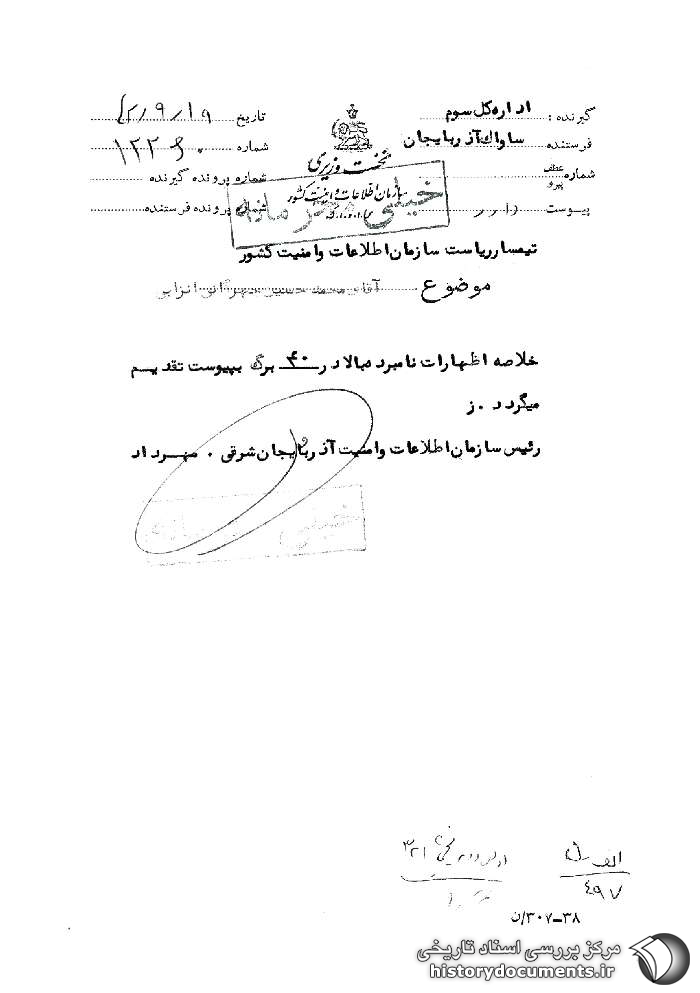 گیرنده: اداره کل سوم
فرستنده ساواک آذربایجان
شماره عطف پیرو
پیوست دارد
نخست وزیری
سازمان اطلاعات و امنیت کشور
س.ا.و.ا.ک
تاریخ ۴۲/۹/۱۹
شماره
شماره پرونده گیرنده
شماره پرونده فرستنده
خیلی محرمانه
تیمسار ریاست سازمان اطلاعات و امنیت کشور
موضوع آقای محمد حسین انزابی
خلاصه اظهارات نامبرده بالا در ۴۰ برگ بپیوست تقدیم
میگردد. ز
رئیس سازمان اطلاعات و امنیت آذربایجان شرقی . مهرداد
خیلی محرمانه
۳۲۱
الف
۴۹۷
۳۸-۳۰۷/ن
مرکز بررسی اسناد تاریخی
historydocuments.ir